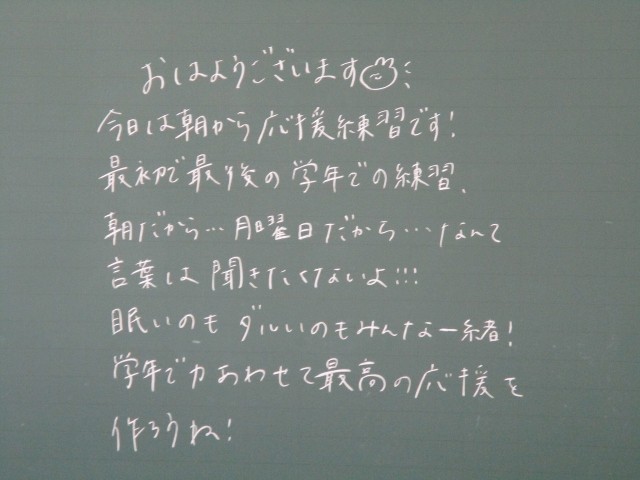 おはようございます
今日は朝から応援練習です!
最初で最後の学年での練習、
朝だから…月曜日だから…なんて
言葉は聞きたくないよ!!!
眠いのもダルいのもみんな一緒!
学年で力あわせて最高の応援を
作ろうね!